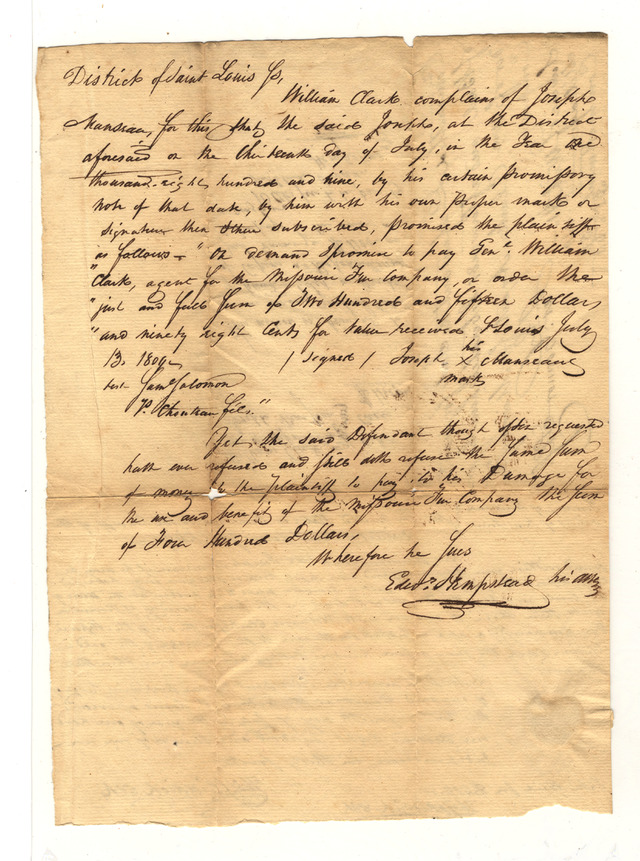 District of Saint Louis Ss,
William Clark complains of Joseph
Manseau, for this, that, the said Joseph, at the District
aforesaid on the thirteenth day of July, in the Year one
thousand eight hundred and nine, by his certain promissory
note of that date, by him with his own proper mark or
signature then & there subscribed, promised the plaintiff
as follows — " On demand I promise to pay Genl. William
" Clark, agent for the Missouri Fur Company, or order the
" just and full Sum of Two Hundred and fifteen Dollars
" and ninety eight Cents for value received St Louis July
13. 1809, / signed / Joseph his X mark Manseau
test Saml Solomon
P. Chouteau fils."
Yet, the said Defendant though often requested
hath ever refused and still doth refuse the Same Sum
of money to the plaintiff to pay, to his Damage for
the use and benefit of the Missouri Fur Company the Sum
of Four Hundred Dollars,
Wherefore he Sues
Edwd. Hempstead his atty